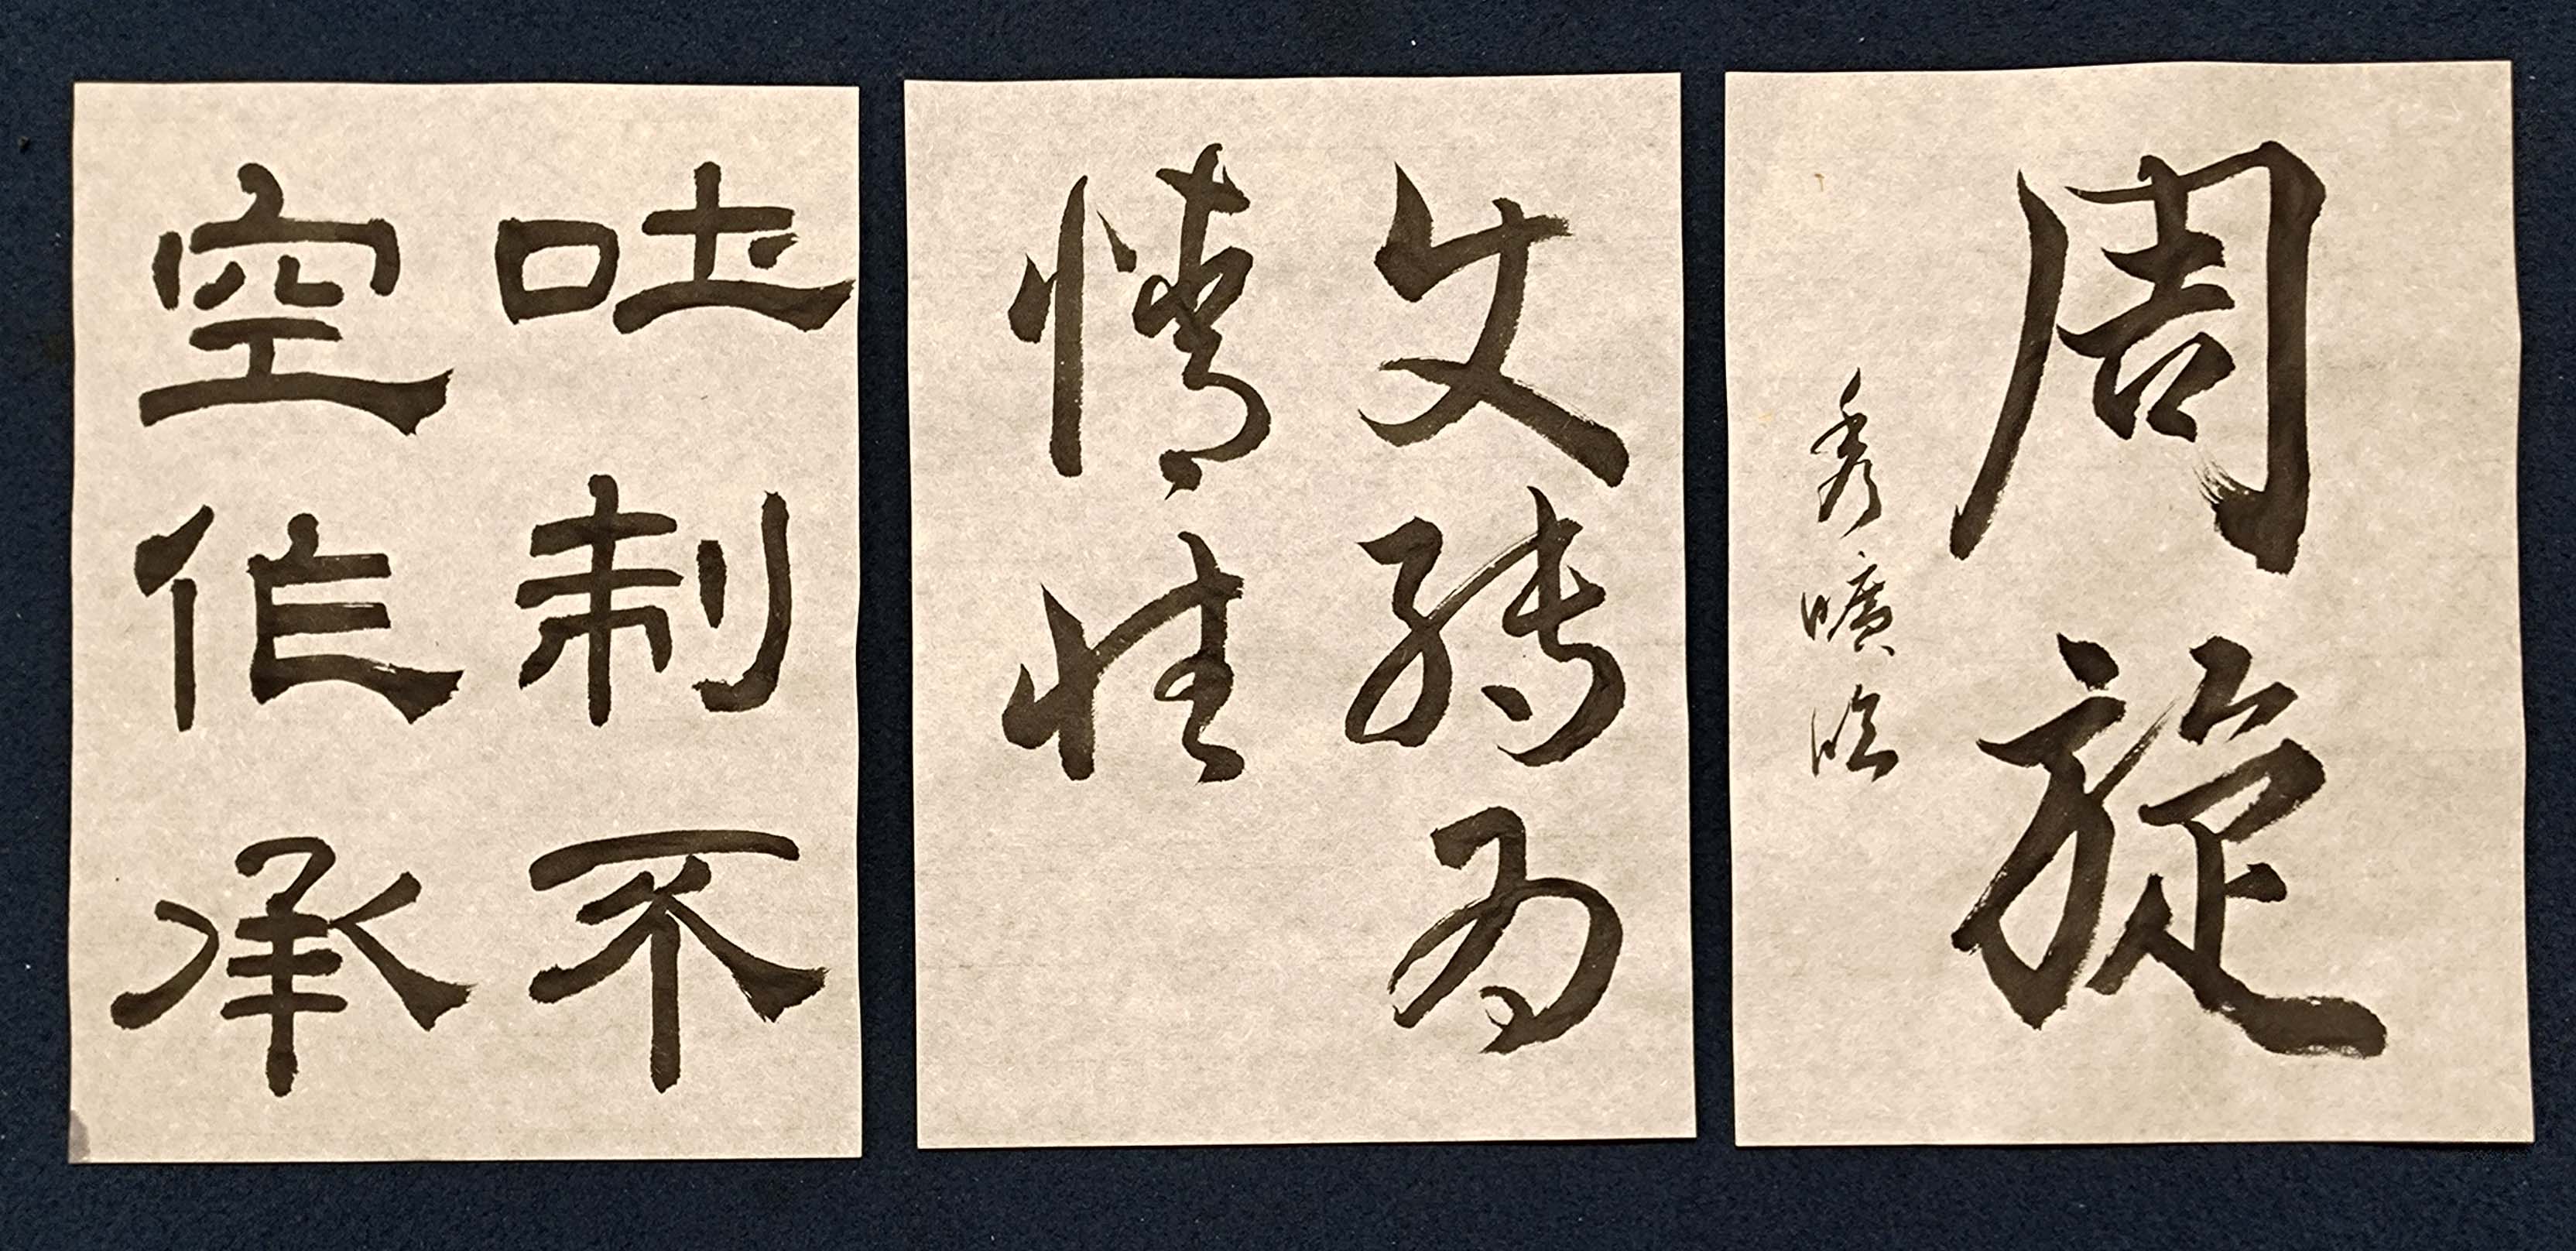 周旋
秀曠臨
使轉為
情性
吐制不
空作承